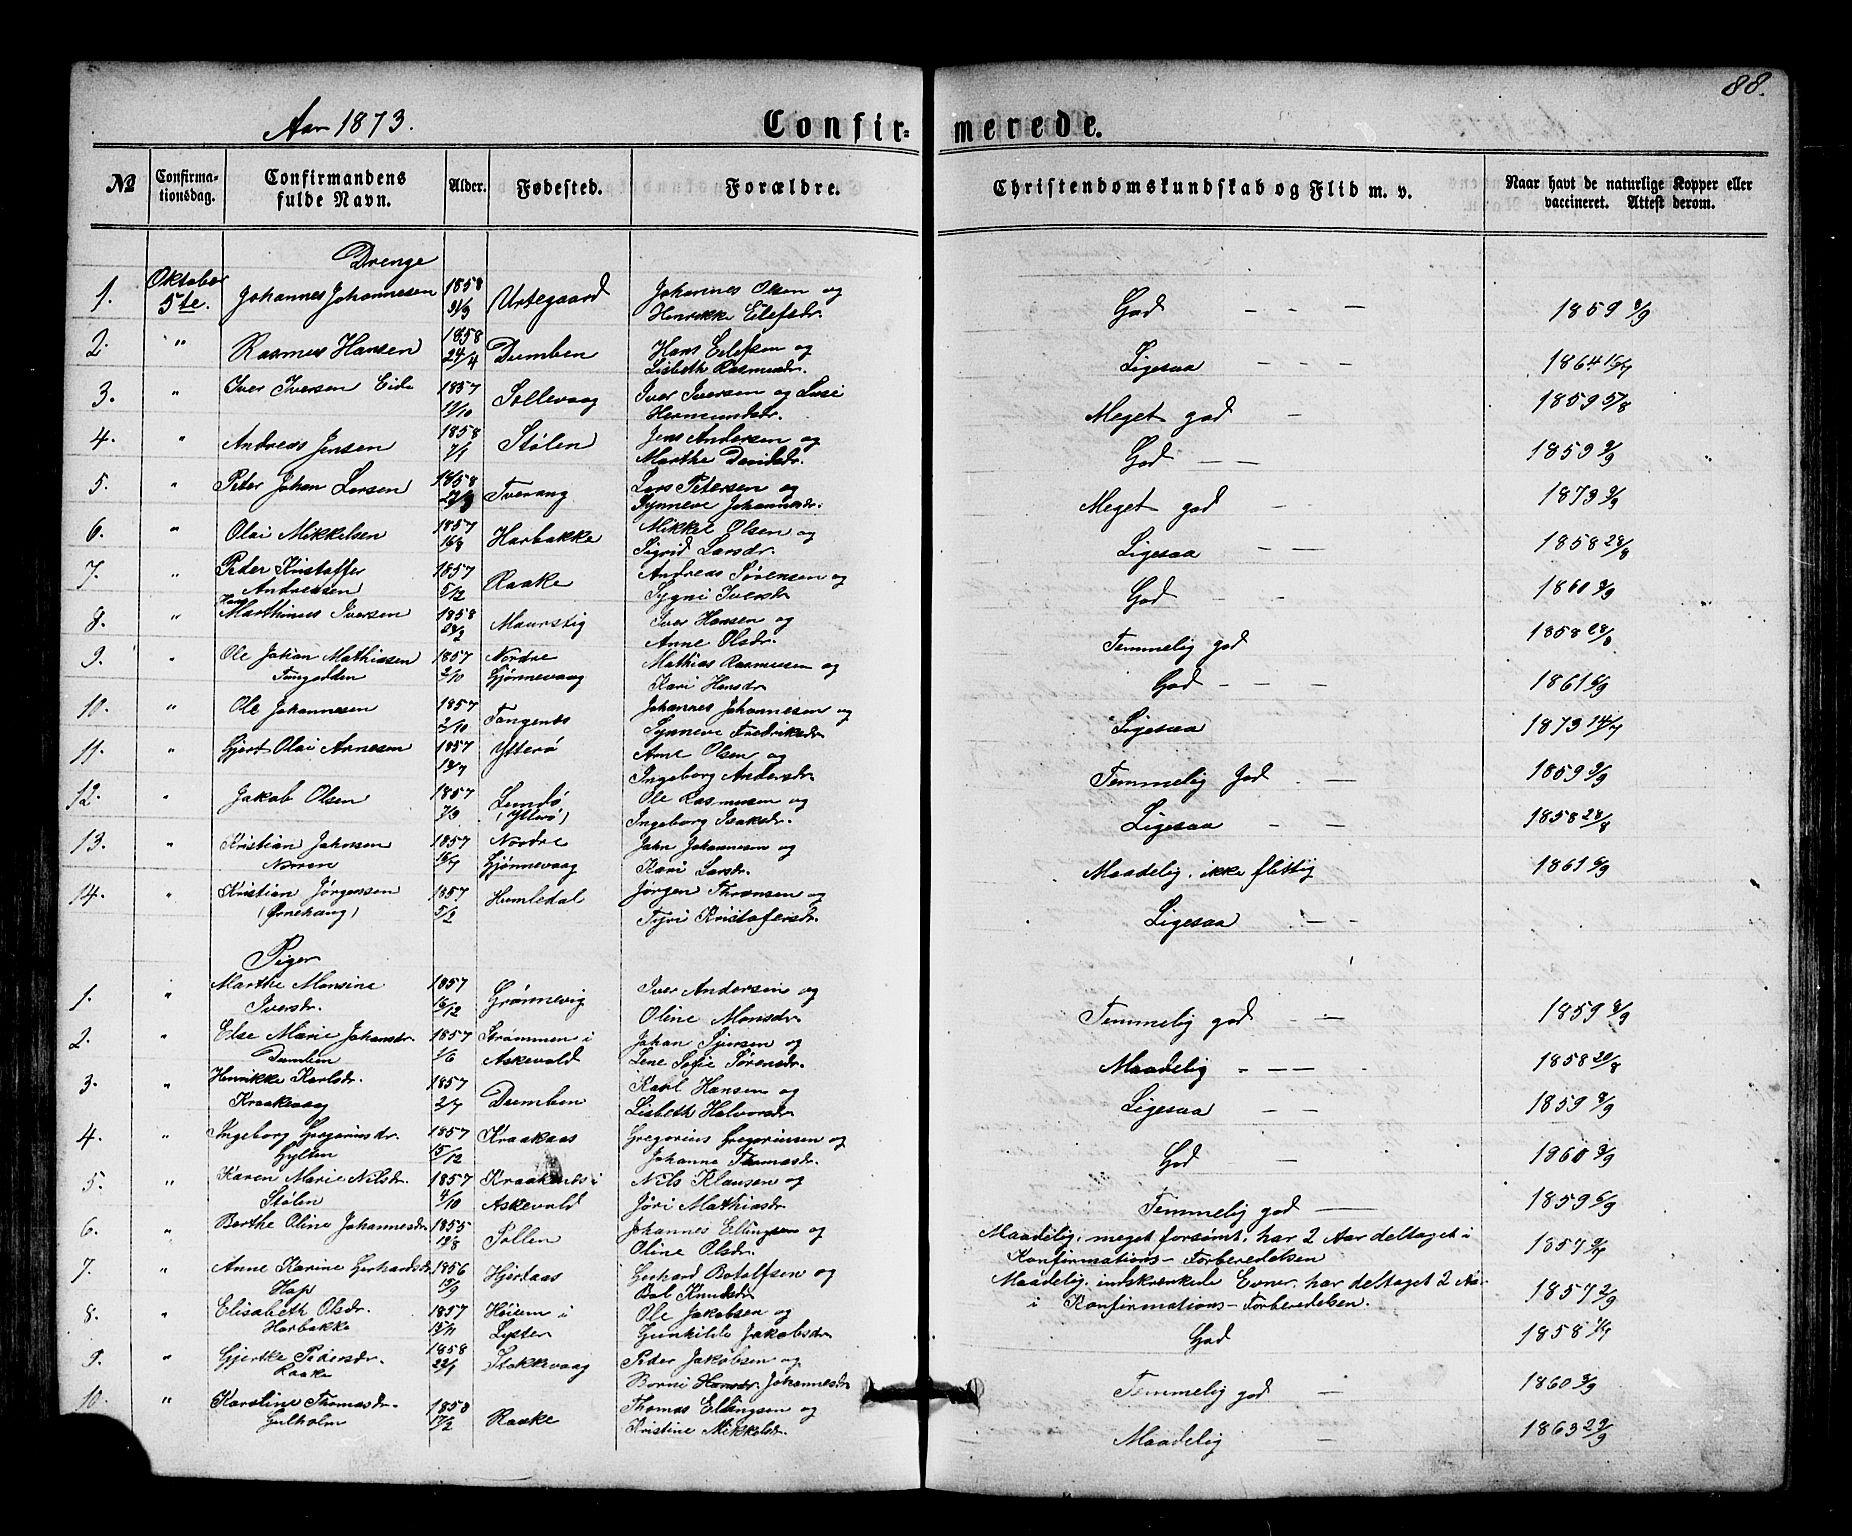 88.
Aar 1873.
Confir-
merede.
No
Confirma-
tionsdag.
Confirmandens
fulde Navn.
Alder.
Fødested.
Forældre.
Christendomskundskab og Flid m. v.
Naar havt de naturlige Kopper eller
vaccineret. Attest derom.
Drenge
1. Oktober 5te. Johannes Johannesen 1858 Urtegaard Johannes Olsen og Henrikke Eilefsdr. God - - - 1859 3/9
2. " Rasmus Hansen 1858 24/4 Dumben Hans Eilefsen og Lisbeth Rasmusdr. Ligesaa - - - 1864
3. " Iver Iversen Eide 1857 Sollevaag Iver Iversen og Hermundsdr. Meget god - 1859 5/8
4. " Andreas Jensen 1858 7/1 Stølen Jens Andersen og Marthe Davidsdr. God - - 1859 3/9
5. " Peter Johan Larsen 1858 Tverang Lars Petersen og Synneve Johannesdr. Meget god - - 1873
6. " Olai Mikkelsen 1857 16/8 Harbakke Mikkel Olsen og Sigrid Larsdr. Ligesaa - - 1858 28/8
7. " Peder Kristoffer Andreasen 1857 5/12 Raake Andreas Sørensen og Sygni Iversdr God - - 1860 3/9
8. " Hans Marthinus Iversen 1858 Maurstig Iver Hansen og Anne Olsdr. Temmelig god 1858 28/8
9. " Ole Johan Mathiasen 1857 2/10 Nordre Gjønnevaag Mathias Rasmusen og Kari Hansdr. God - - - 1861 6/9
10. " Ole Johannesen 1857 2/10 Tangenes Johannes Johannesen og Synneve Fredriksdr. Ligesaa - - 1873 14/7
11. " Gjert Olai Arnesen 1857 Ytterø Arne Olsen og Ingeborg Andersdr. Temmelig God - - 1859 3/9
12. " Jakob Olsen 1857 7/9 Lemdø (Ytterø) Ole Rasmusen og Ingeborg Isaksdr. Ligesaa - - 1858 28/8
13. " Kristian Johnsen 1857 16/7 Nordre Gjønnevaag John Johannesen og Kari Larsdr. Maadelig, ikke flittig 1861 6/9
14. " Kristian Jørgensen (Ørnehaug) 1857 5/2 Humledal Jørgen Thronsen og Tyri Kristofersdr. Ligesaa - -
Piger
1. " Marthe Monsine Iversdr. 1857 16/12 Grønnevig Iver Andersen og Oline Monsdr. Temmelig god - - 1859 3/9
2. " Else Marie Johansdr. Dumben 1857 1/6 Strømmen i Askevold Johan Sjursen og Lene Sofie Sørensdr. Maadelig - - - 1858
3. " Henrikke Karlsdr. Kraakevaag 1857 2/7 Dumben Karl Hansen og Lisbeth Halvorsdr. Ligesaa - - 1859 3/9
4. " Ingeborg Gregoriusdr. Gylten 1857 15/12 Kraakaas Gregorius Gregoriussen og Johanne Thomasdr. God - 1860 3/9
5. " Karen Marie Nilsdr. Stølen 1857 4/10 Kraakenes i Askevold Nils Klausen og Jøri Mathiasdr. Temmelig god - 1859 6/9
6. " Berthe Oline Johannesdr. 1855 Pollen Johannes Ellingsen og Oline Olsdr. Maadelig, meget forsømt, har 2 Aar deltaget i Konfirmations-Forberedelsen 1857
7. " Anne Karine Gerhardsdr. Hop 1856 Hjertaas Gerhard Botolfsen og Knudsdr. Maadelig, indskrænkede Evner, har deltaget 2 Aar i Konfirmations-Forberedelsen. 1857 2/9
8. " Elisabeth Olsdr. Harbakke 1857 Høiem i Lyster Ole Jakobsen og Gunhilde Jakobsdr. God 1858
9. " Gjertke Pedersdr. Raake 1858 22/1 Stokkevaag Peder Jakobsen og Borni Hansdr. Johannesdr Temmelig god - 1860 3/9
10. " Karstine Thomasdr. Gulholm 1858 17/2 Raake Thomas Ellingsen og Kristine Mikkelsdr. Maadelig - 1863 29/9